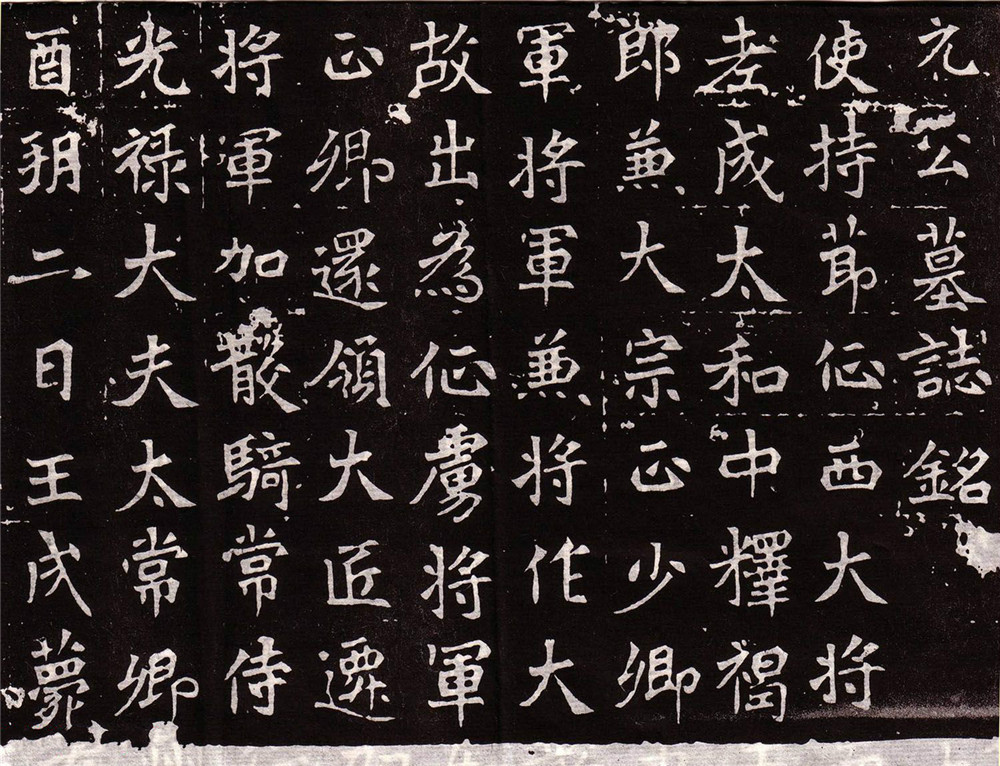 元公墓誌銘
使持莭征西大將
孝成太和中釋褐
郎兼大宗正少卿
軍將軍兼將作大
故出為征虜將軍
正卿還領大匠遷
將軍加散騎常侍
光禄大夫太常卿
酉朔二日壬戌薨